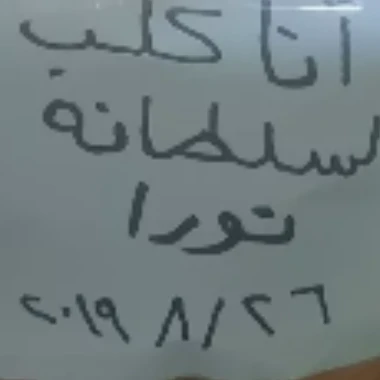 أنا كلب
لسلطانه
نورا
٢٠١٩ ٨/٢٦